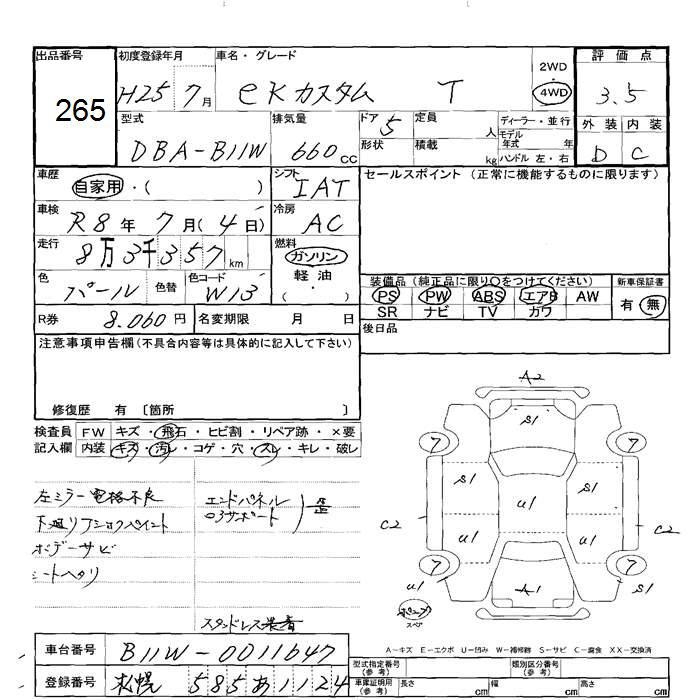 出品番号 初度登録年月 車名・グレード 2WD・4WD 評価点
265 H25 7月 eKカスタム T 3.5
型式 排気量 ドア 定員 人 ディーラー・並行 外装 内装
DBA-B11W 660cc 5 形状 積載 kg モデル年式 年 ハンドル 左・右 D C
車歴 自家用・( ) シフト IAT セールスポイント(正常に機能するものに限ります)
車検 R8年7月(4日) 冷房 AC
走行 8万3千357km 燃料 ガソリン 軽油 ( ・ )
色 パール 色替 色コード W13 装備品(純正品に限り○をつけてください) 新車保証書
PS PW ABS エアB AW 有・無
SR ナビ TV カワ
R券 8.060円 名変期限 月 日 後日品
注意事項申告欄(不具合内容等は具体的に記入して下さい)
修復歴 有 〔箇所 〕
検査員 FW キズ・飛石・ヒビ割・リペア跡・×要
記入欄 内装 キズ・汚レ・コゲ・穴・スレ・キレ・破レ
左ミラー電格不良 エンドパネル
下廻リフショクペイント ロアサポート 歪
ボデーサビ
シートヘタリ
スタッドレス装着
A2
S1
7 7
S1 U1 S1
C2 U1 U1 C2
7 7
U1 A1 S1
スペ
A-キズ E-エクボ U-凹み W-補修跡 S-サビ C-腐食 XX-交換済
車台番号 B11W-0011647 型式指定番号(参考) 類別区分番号(参考)
登録番号 札幌 585 あ1124 車庫証明用(参考) 長さ cm 幅 cm 高さ cm